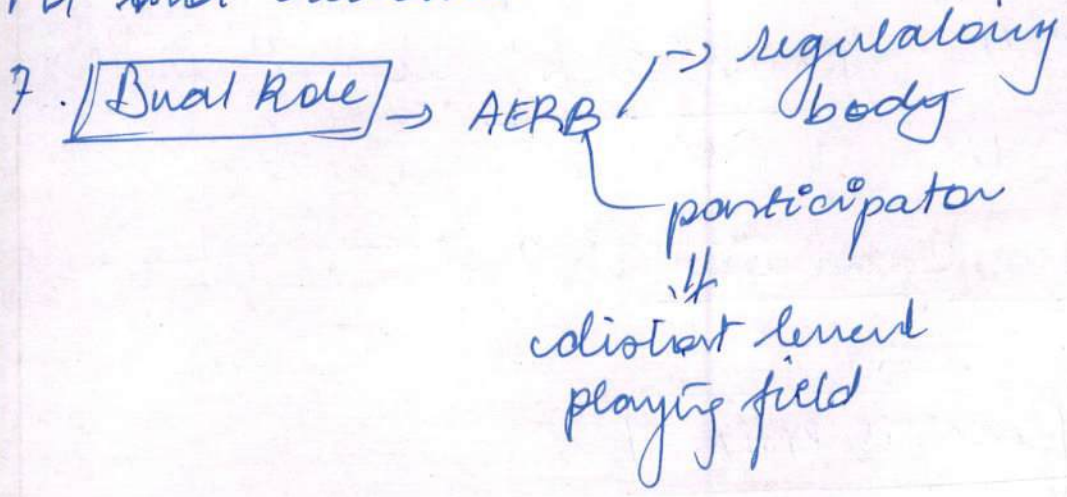 7. Dual Role → AERB → regulatory
body
participator
⇓
distort level
playing field